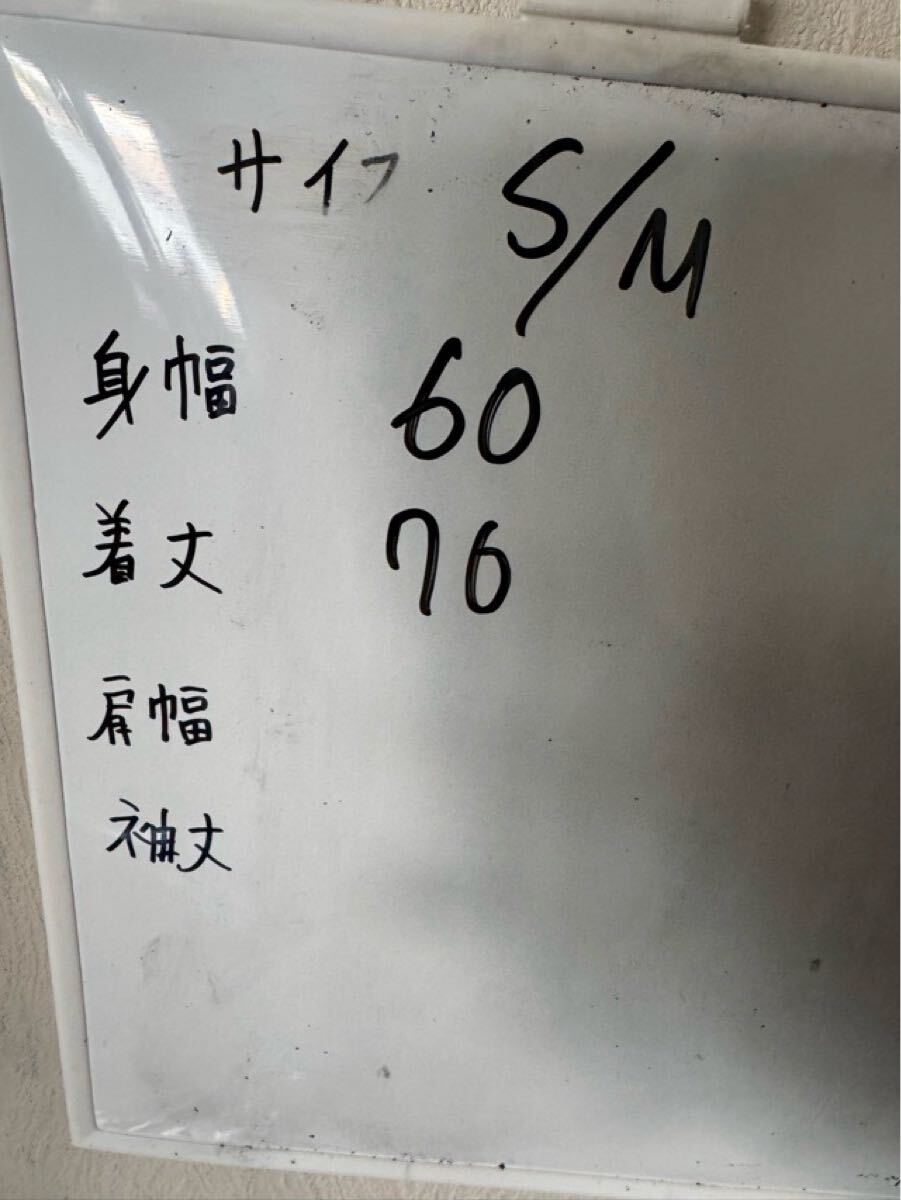 サイズ S/M
身幅 60
着丈 76
肩幅
袖丈